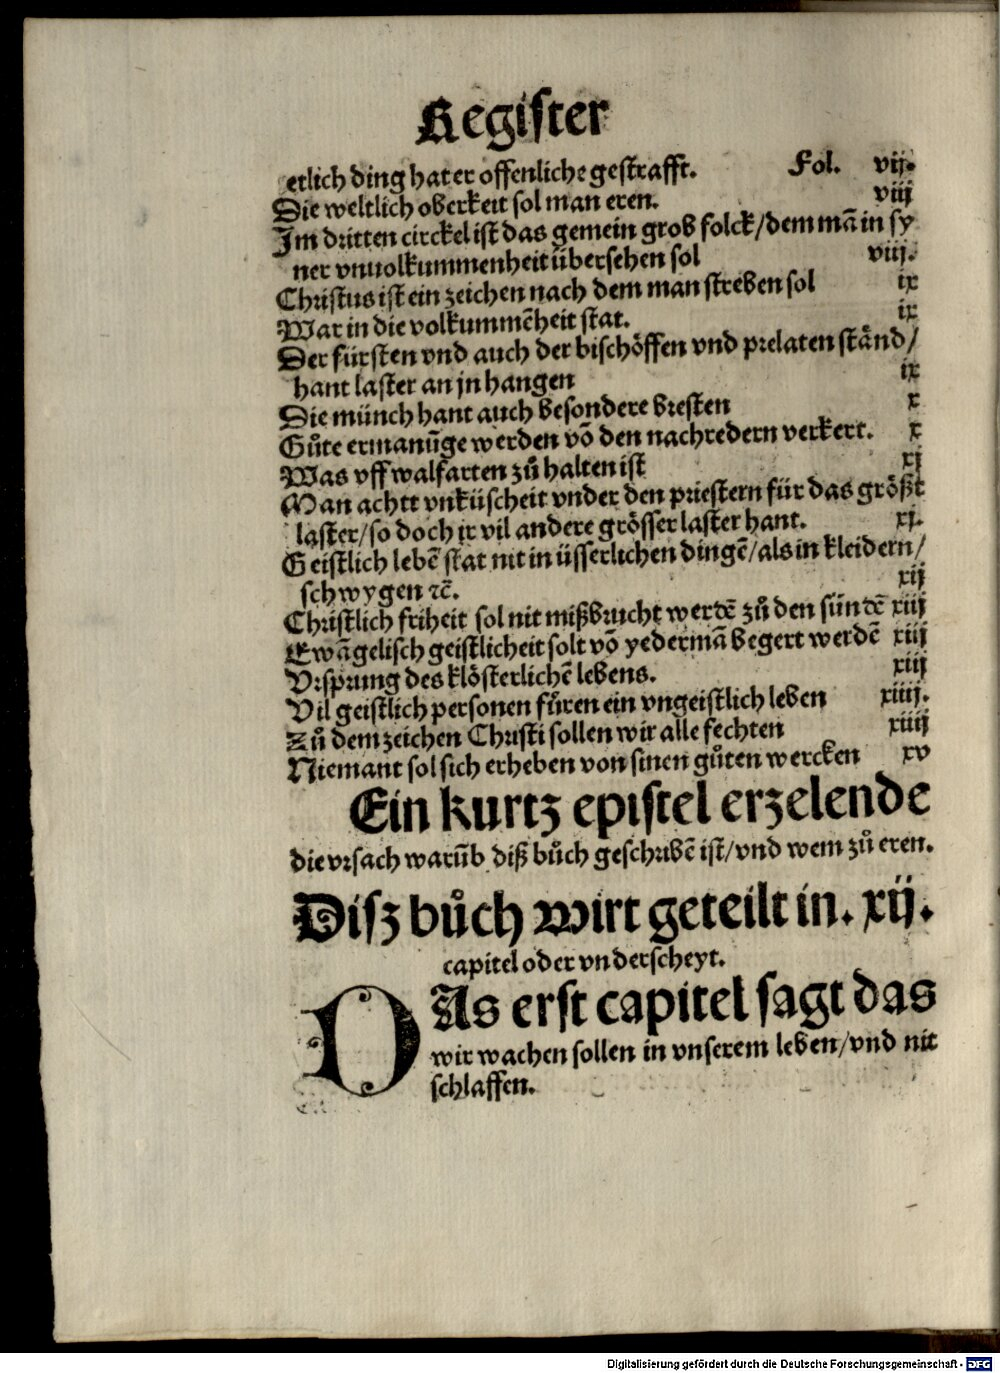 Register
etlich ding hat er offenliche gestrafft. Fol. vij.
Die weltlich oberkeit sol man eren. viij
Im dritten circkel ist das gemein grob folck/dem mā in sy
ner vnuolkummenheit übersehen sol viij.
Christus ist ein zeichen nach dem man streben sol ix
War in die volkummēheit stat. ix
Der fürsten vnd auch der bischöffen vnd prelaten ständ/
hant laster an jn hangen ix
Die münch hant auch besondere bresten x
Gůte ermanūge werden vō den nachredern verkert. x
Was vff walfarten zů halten ist xj
Man achtt vnküscheit vnder den priestern für das größt
laster/so doch ir vil andere grösser laster hant. xj.
Geistlich lebē stat nit in üsserlichen dingē/als in kleidern/
schwygen ⁊c̄. xij
Christlich friheit sol nit mißbrucht werdē zů den sündē xiij
Ewāgelisch geistlicheit solt vō yedermā begert werdē xiij
Vrsprung des klösterlichē lebens. xiij
Vil geistlich personen fůren ein vngeistlich leben xiiij.
Zů dem zeichen Christi sollen wir alle fechten xiiij
Niemant sol sich erheben von sinen gůten wercken xv
Ein kurtz epistel erzelende
die vrsach warūb diß bůch geschribē ist/vnd wem zů eren.
Disz bůch wirt geteilt in. xij.
capitel oder vnderscheyt.
DAs erst capitel sagt das
wir wachen sollen in vnserem leben/vnd nit
schlaffen.
Digitalisierung gefördert durch die Deutsche Forschungsgemeinschaft - DFG